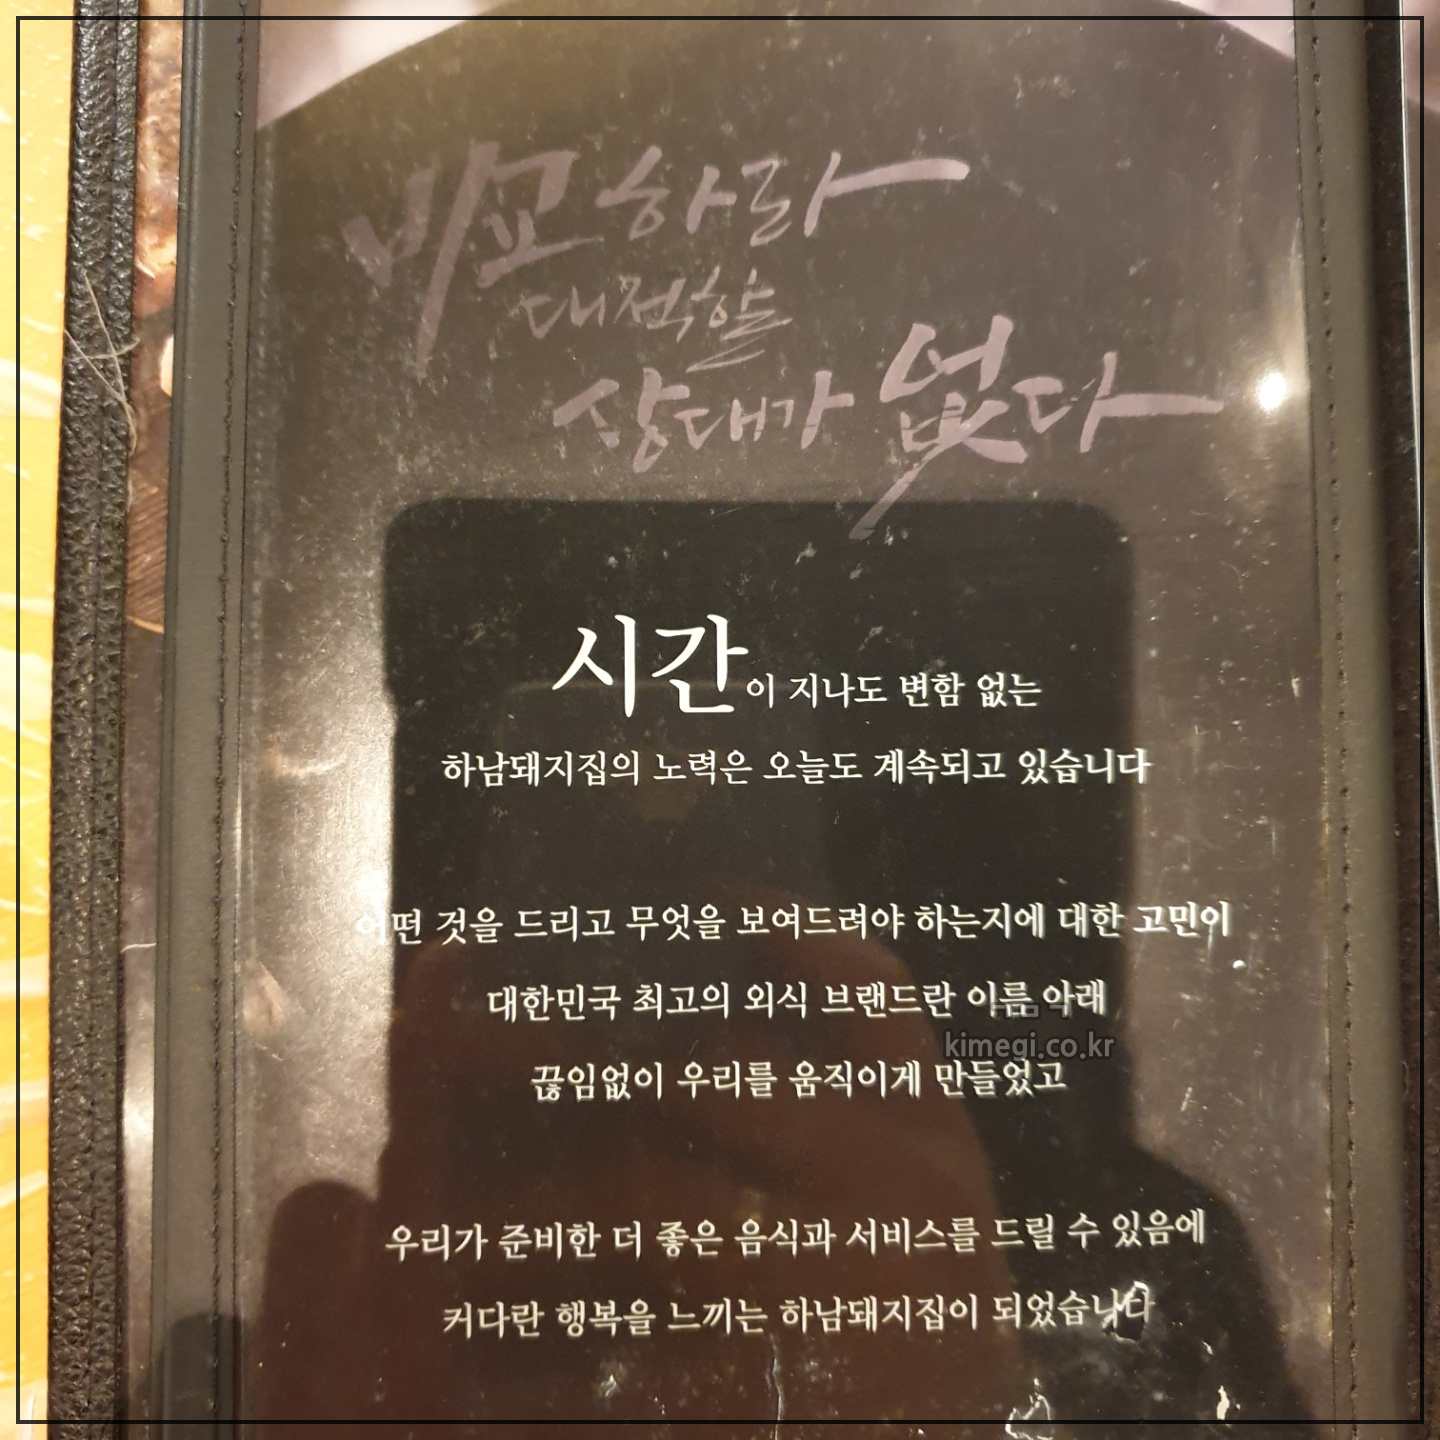 비교하라
대적할
상대가 없다
시간이 지나도 변함 없는
하남돼지집의 노력은 오늘도 계속되고 있습니다
어떤 것을 드리고 무엇을 보여드려야 하는지에 대한 고민이
대한민국 최고의 외식 브랜드란 이름 아래
kimegi.co.kr
끊임없이 우리를 움직이게 만들었고
우리가 준비한 더 좋은 음식과 서비스를 드릴 수 있음에
커다란 행복을 느끼는 하남돼지집이 되었습니다